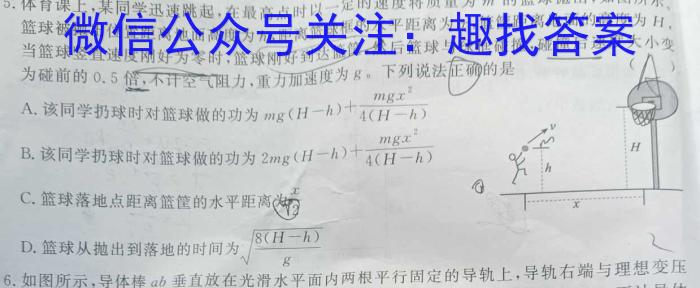 5.体育课上，某同学迅速跳起，在最高点时以一定的速度将质量为m的篮球抛出，如图所示。
篮球被
平距离为
为H，
微信公众号关注：趣找答案
当篮球竖直速度刚好为零时，篮球刚好到达
然后篮球与
大小变
为碰前的0.5倍，不计空气阻力，重力加速度为g。下列说法正确的是 （ ）
A.该同学扔球时对篮球做的功为mg(H－h)＋mgx²/4(H－h)
B.该同学扔球时对篮球做的功为2mg(H－h)＋mgx²/4(H－h)
C.篮球落地点距离篮筐的水平距离为x/2
D.篮球从抛出到落地的时间为√8(H－h)/g
v
h
H
x
6.如图所示，导体棒ab垂直放在光滑水平面内两根平行固定的导轨上，导轨右端与理想变压